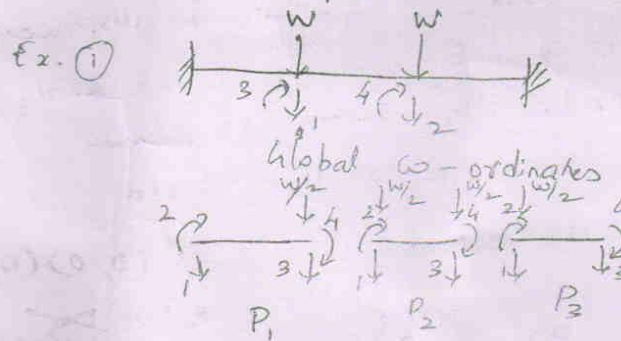 W W
Ex. ①
3 1 4 2
Global co-ordinates
W/2 W/2 W/2 W/2
2 4 2 4 2 4
1 3 1 3 1 3
P1 P2 P3